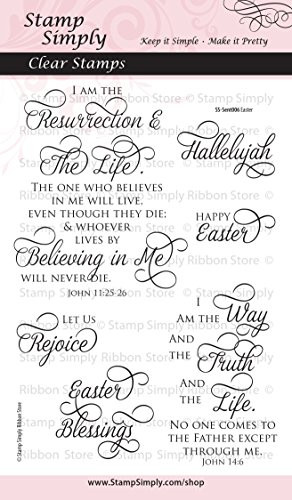 Stamp
Simply
Keep it Simple • Make it Pretty
Clear Stamps
SS-Sent006 Easter
I am the
Resurrection &
The Life.
The one who believes
in me will live,
even though they die;
& whoever
lives by
Believing in Me
will never die.
John 11:25-26
Hallelujah
Happy
Easter
Let Us
Rejoice
Easter
Blessings
I
am the Way
and
the Truth
and
the Life.
No one comes to
the Father except
through me.
John 14:6
© Stamp Simply Ribbon Store
www.StampSimply.com/shop